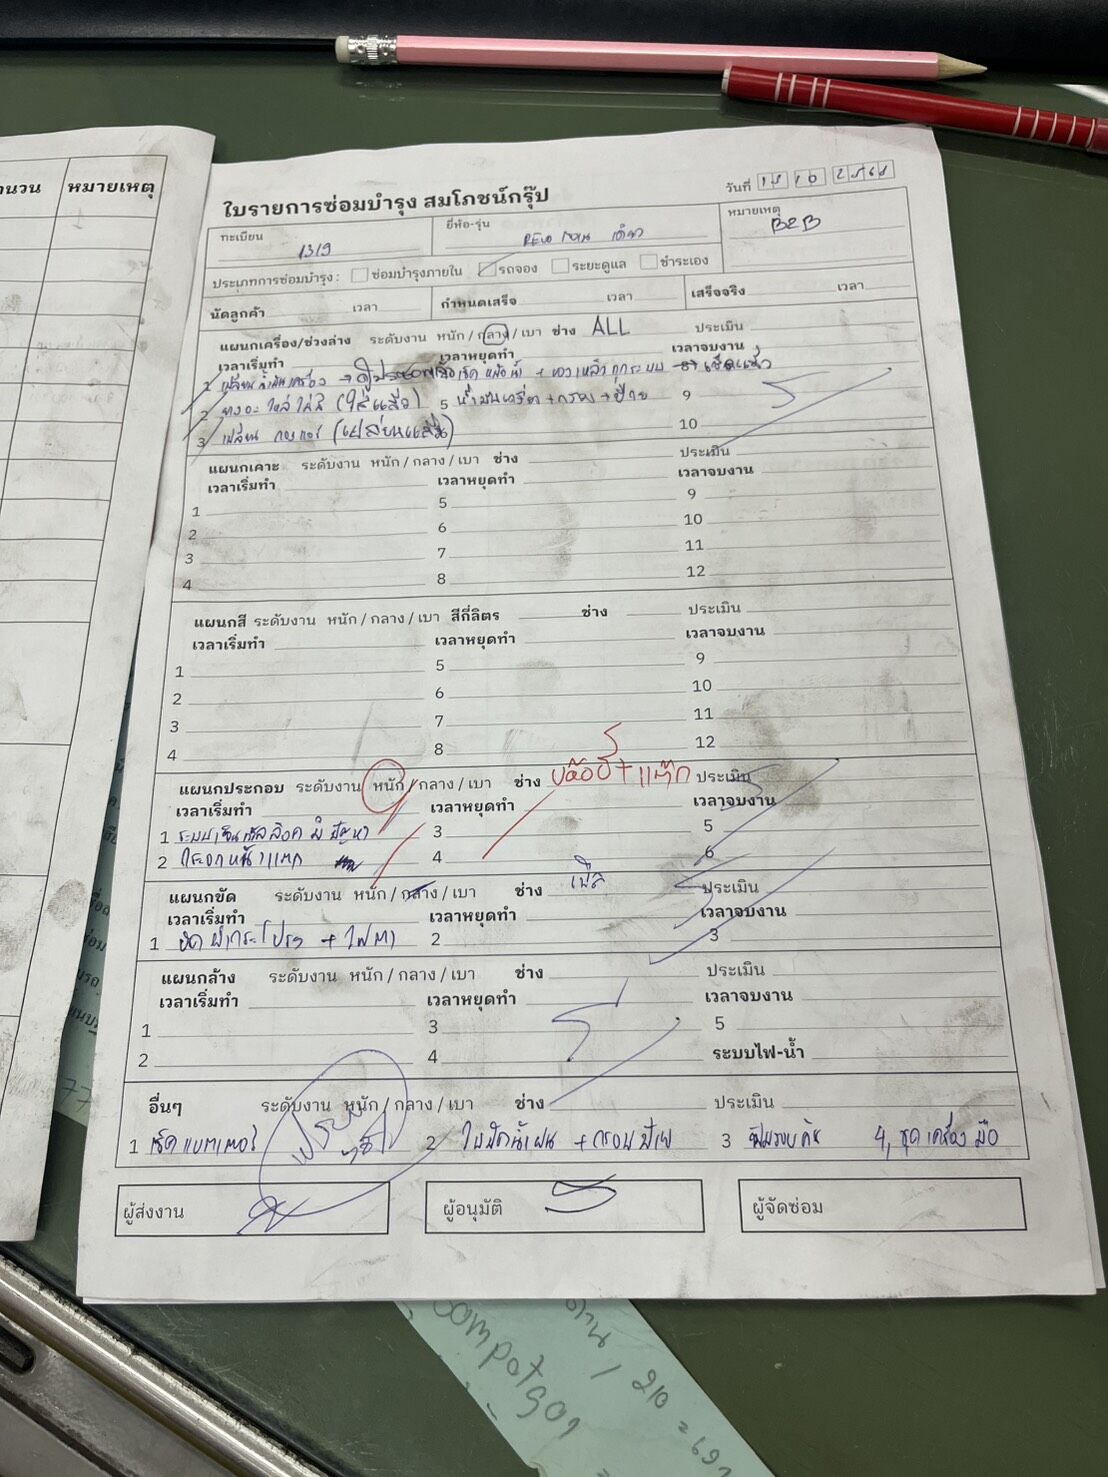 านวน หมายเหตุ
ใบรายการซ่อมบำรุง สมโภชน์กรุ๊ป
วันที่ 10 2568
ทะเบียน 1319 ยี่ห้อ-รุ่น REVO ตอน เดียว หมายเหตุ B2B
ประเภทการซ่อมบำรุง : ซ่อมบำรุงภายใน รถจอง ระยะดูแล ชำระเอง
นัดลูกค้า เวลา กำหนดเสร็จ เวลา เสร็จจริง เวลา
แผนกเครื่อง/ช่วงล่าง ระดับงาน หนัก / กลาง / เบา ช่าง ALL ประเมิน
เวลาเริ่มทำ เวลาหยุดทำ เวลาจบงาน
1 เปลี่ยนน้ำมันเครื่อง → เช็ค หม้อน้ำ + ของเหลวทุกระบบ → เช็คแล้ว
2 ใส่ (ใส่แล้ว) 5 น้ำมันเครื่อง + กรอง + ป้าย 9
3 เปลี่ยน กรองแอร์ (เปลี่ยนแล้ว) 10
แผนกเคาะ ระดับงาน หนัก / กลาง / เบา ช่าง ประเมิน
เวลาเริ่มทำ เวลาหยุดทำ เวลาจบงาน
1 5 9
2 6 10
3 7 11
4 8 12
แผนกสี ระดับงาน หนัก / กลาง / เบา สีกี่ลิตร ช่าง ประเมิน
เวลาเริ่มทำ เวลาหยุดทำ เวลาจบงาน
1 5 9
2 6 10
3 7 11
4 8 12
แผนกประกอบ ระดับงาน หนัก / กลาง / เบา ช่าง ประเมิน
เวลาเริ่มทำ เวลาหยุดทำ เวลาจบงาน
1 ระบบเซ็นทรัลล็อค มี ปัญหา 3 5
2 กระจกหน้าแตก 4 6
แผนกขัด ระดับงาน หนัก / กลาง / เบา ช่าง ประเมิน
เวลาเริ่มทำ เวลาหยุดทำ เวลาจบงาน
1 ขัด ฝากระโปรง + ไฟตา 2 3
แผนกล้าง ระดับงาน หนัก / กลาง / เบา ช่าง ประเมิน
เวลาเริ่มทำ เวลาหยุดทำ เวลาจบงาน
1 3 5
2 4 ระบบไฟ-น้ำ
อื่นๆ ระดับงาน หนัก / กลาง / เบา ช่าง ประเมิน
1 เช็คแบตเตอรี่ 2 ใบปัดน้ำฝน + กรอบป้าย 3 ฟิล์มรอบคัน 4, ชุดเครื่องมือ
ผู้ส่งงาน ผู้อนุมัติ ผู้จัดซ่อม
77
ด้าน / 210 = 692